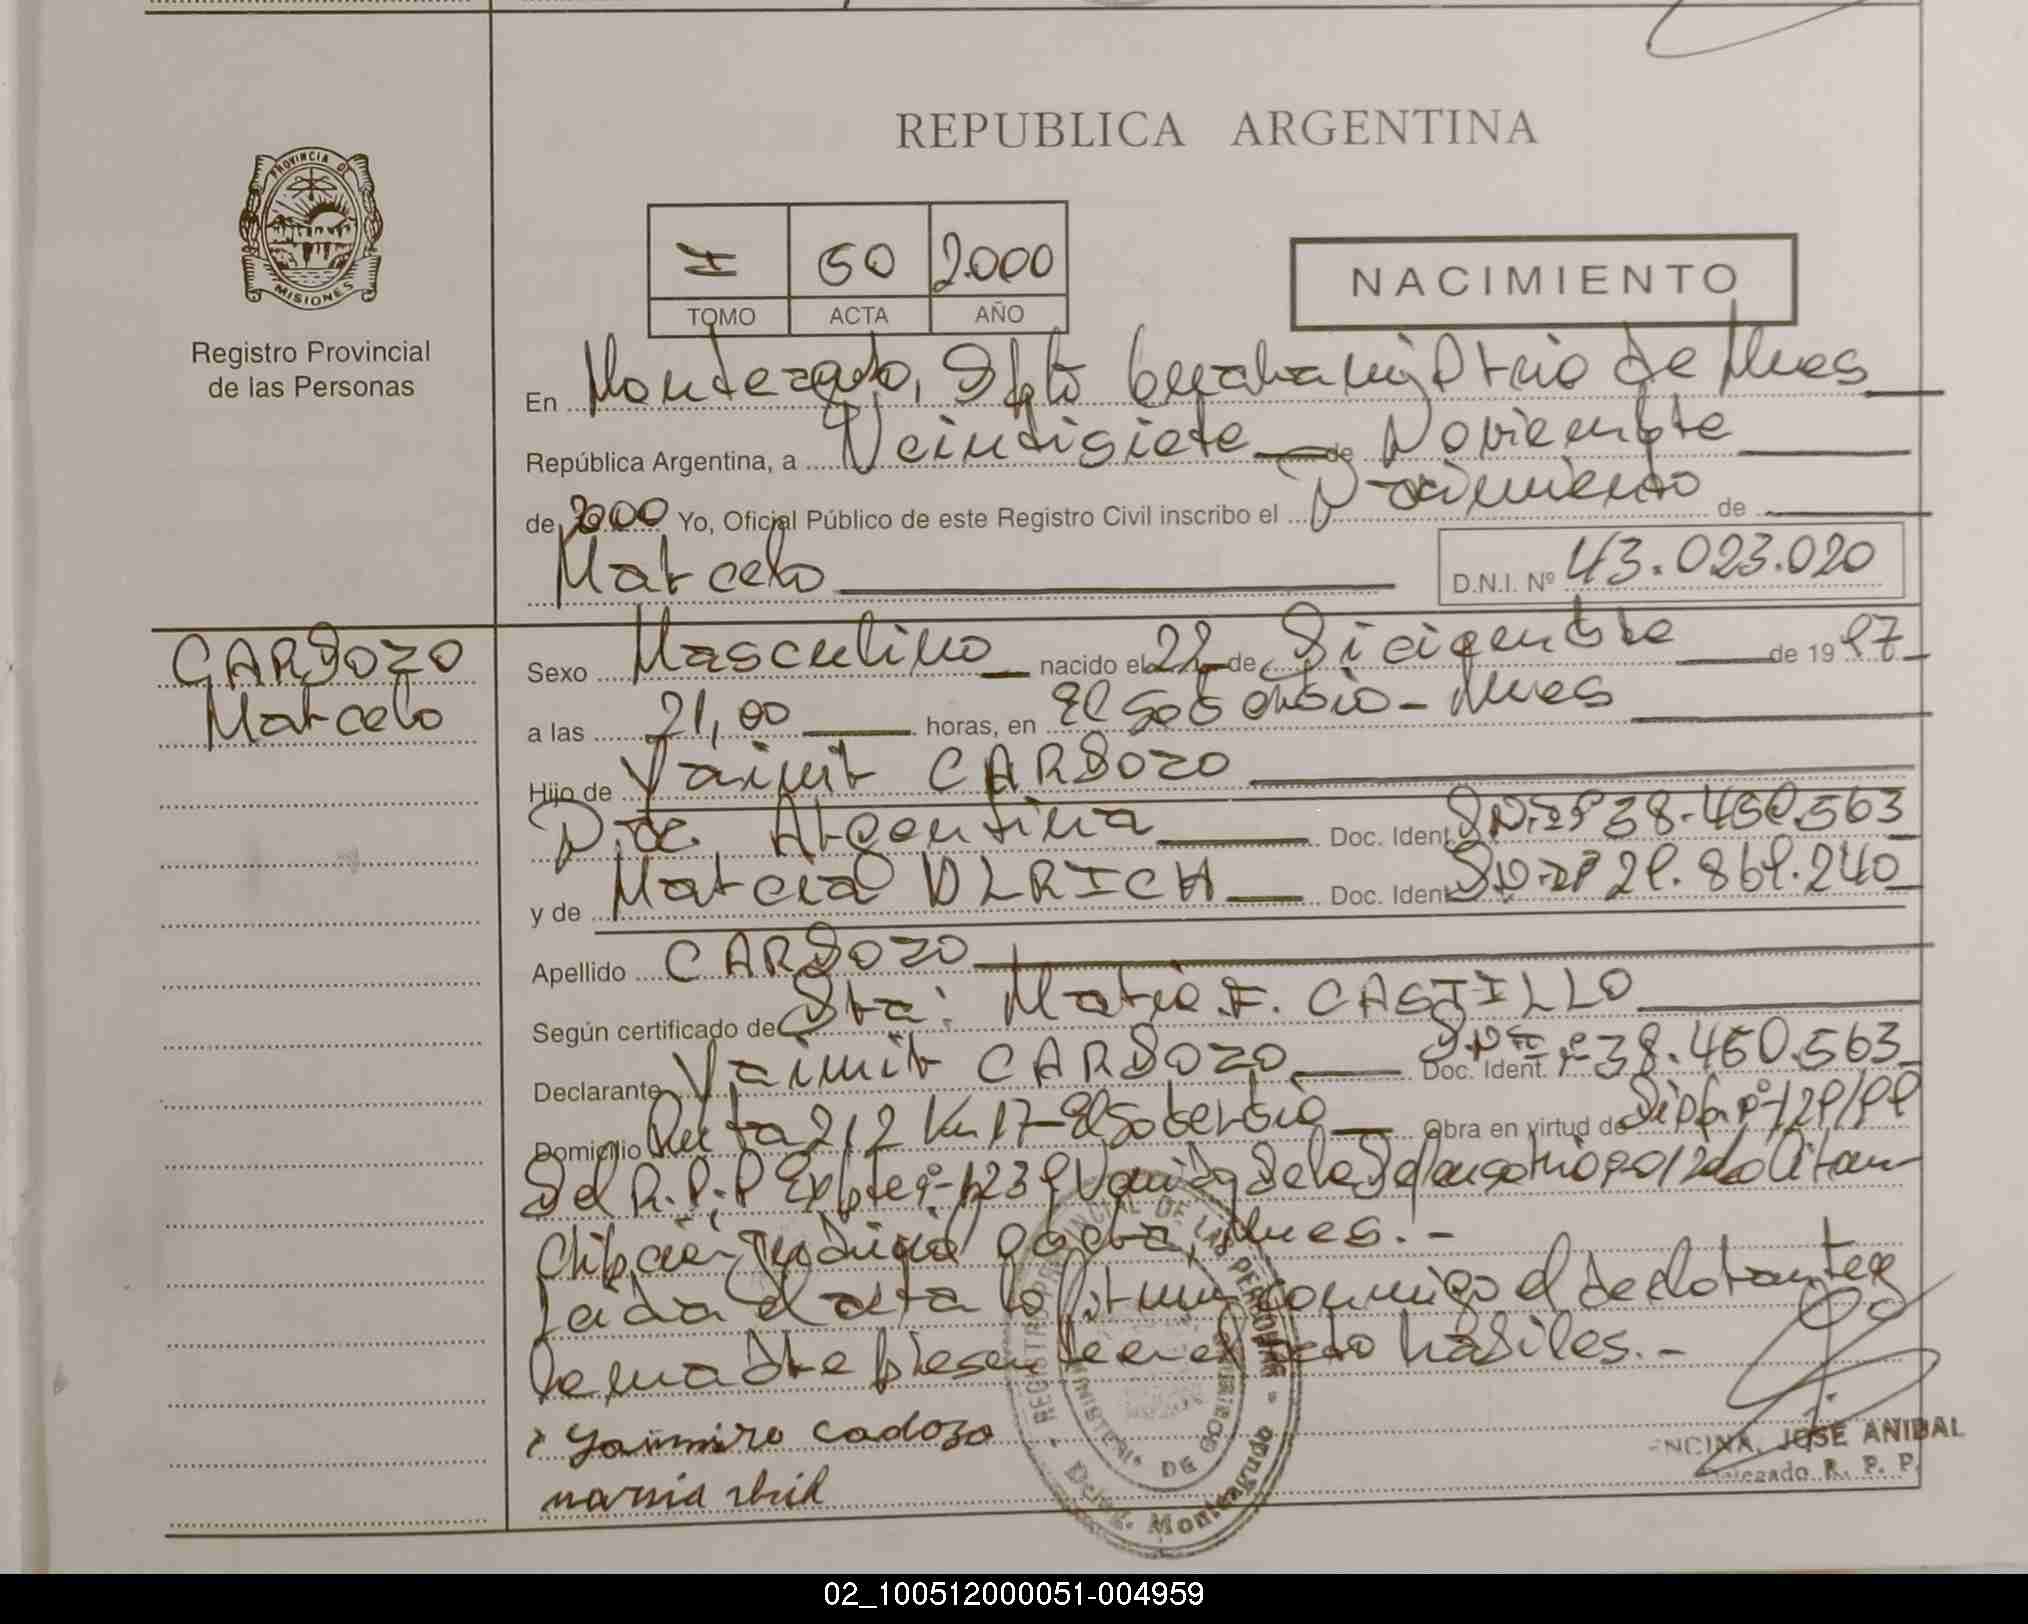 REPUBLICA ARGENTINA
PROVINCIA DE
MISIONES
Registro Provincial
de las Personas
I 50 2000
TOMO ACTA AÑO
NACIMIENTO
En Montecarlo, Dpto de Mnes
República Argentina, a Veintisiete de Noviembre
de 2000 Yo, Oficial Público de este Registro Civil inscribo el Nacimiento de
Marcelo
D.N.I. Nº 43.023.020
CARDOZO
Marcelo
Sexo Masculino nacido el 22 de Diciembre de 1997
a las 21,00 horas, en El Soberbio - Mnes
Hijo de Vaimir CARDOZO
Nac. Argentina Doc. Ident. DNI Nº 38.450.563
y de Marcia ULRICH Doc. Ident. DNI Nº 29.869.240
Apellido CARDOZO
Según certificado de Sta: Maria F. CASTILLO
Declarante Vaimir CARDOZO Doc. Ident. DNI Nº 38.450.563
Domicilio Ruta 212 Km 17 - El Soberbio Obra en virtud de Disp. Nº 129/99
del R.P.P Expte Nº 1239 de la
Judicial Oberá, Mnes.-
Leída el acta la firman conmigo el declarante y
la madre presente en el acto hábiles.-
Yaimiro Cadozo
REGISTRO PROVINCIAL DE LAS PERSONAS
MINISTERIO DE GOBIERNO
Deleg. Montecarlo
ENCINA, JOSE ANIBAL
Delegado R. P. P.
02_100512000051-004959